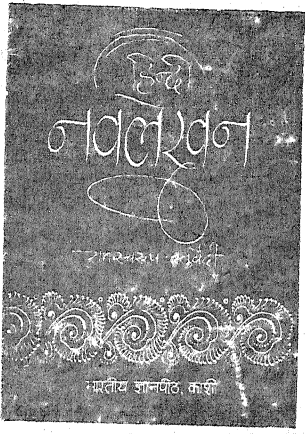 हिन्दी
नवलेखन
रामस्वरूप चतुर्वेदी
भारतीय ज्ञानपीठ, काशी